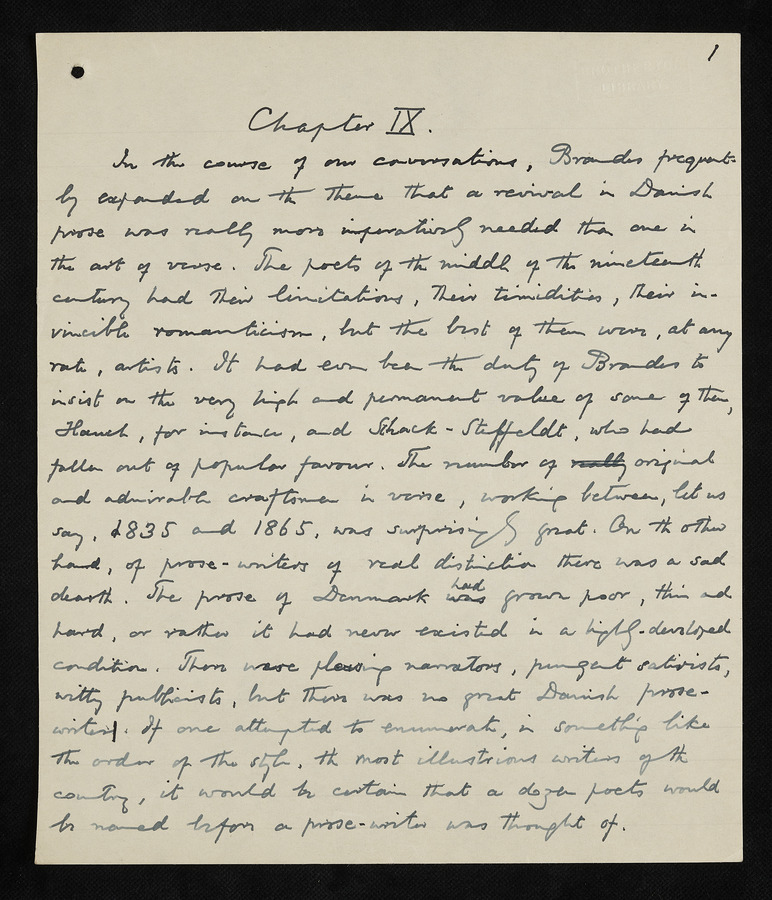 1
Chapter IX.
In the course of our conversations, Brandes frequent-
ly expanded on the theme that a revival in Danish
prose was really more imperatively needed than one in
the art of verse. The poets of the middle of the nineteenth
century had their limitations, their timidities, their in-
vincible romanticism, but the best of them were, at any
rate, artists. It had even been the duty of Brandes to
insist on the very high and permanent value of some of them,
Hauch, for instance, and Schack-Staffeldt, who had
fallen out of popular favour. The number of really original
and admirable craftsmen in verse, working between, let us
say, 1835 and 1865, was surprisingly great. On the other
hand, of prose-writers of real distinction there was a sad
dearth. The prose of Denmark was had grown poor, thin and
hard, or rather it had never existed in a highly-developed
condition. There were pleasing narrators, pungent satirists,
witty publicists, but there was no great Danish prose-
writer. If one attempted to enumerate, in something like
the order of the style, the most illustrious writers of the
country, it would be certain that a dozen poets would
be named before a prose-writer was thought of.